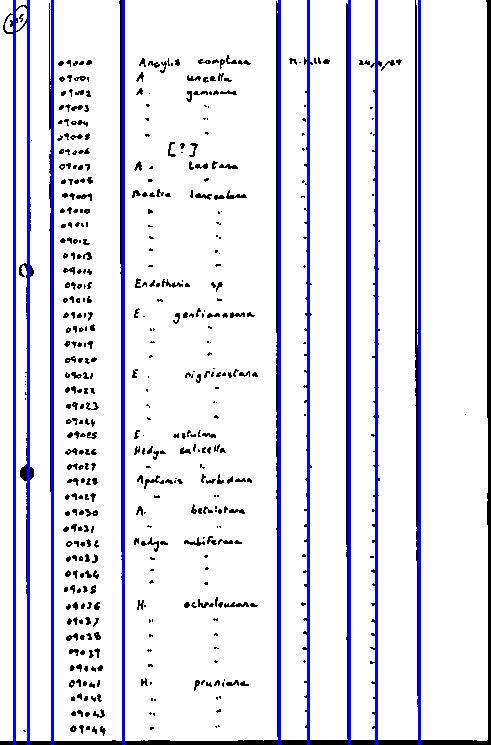 09000 Ancylis comptana 24/4/84
09001 A uncella " "
09002 A. geminana " "
09003 " " " "
09004 " " " "
09005 " " " "
09006 [?] " "
09007 A. laetana " "
09008 " " " "
09009 Bactra lanceolana " "
09010 " " " "
09011 " " " "
09012 " " " "
09013 " " " "
09014 " " " "
09015 Endothenia sp " "
09016 " " " "
09017 E. gentianaeana " "
09018 " " " "
09019 " " " "
09020 " " " "
09021 E nigricostana " "
09022 " " " "
09023 " " " "
09024 " " " "
09025 E. ustulana " "
09026 Hedya salicella " "
09027 " " " "
09028 Apotomis turbidana " "
09029 " " " "
09030 A. betuletana " "
09031 " " " "
09032 Hedya nubiferana " "
09033 " " " "
09034 " " " "
09035 " " " "
09036 H. ochroleucana " "
09037 " " " "
09038 " " " "
09039 " " " "
09040 " " " "
09041 H. pruniana " "
09042 " " " "
09043 " " " "
09044 " " " "